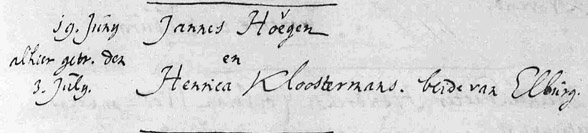 19. Juny Jannes Hoegen
alhier getr. den en
3. July. Henrica Kloostermans. beide van Elburg.